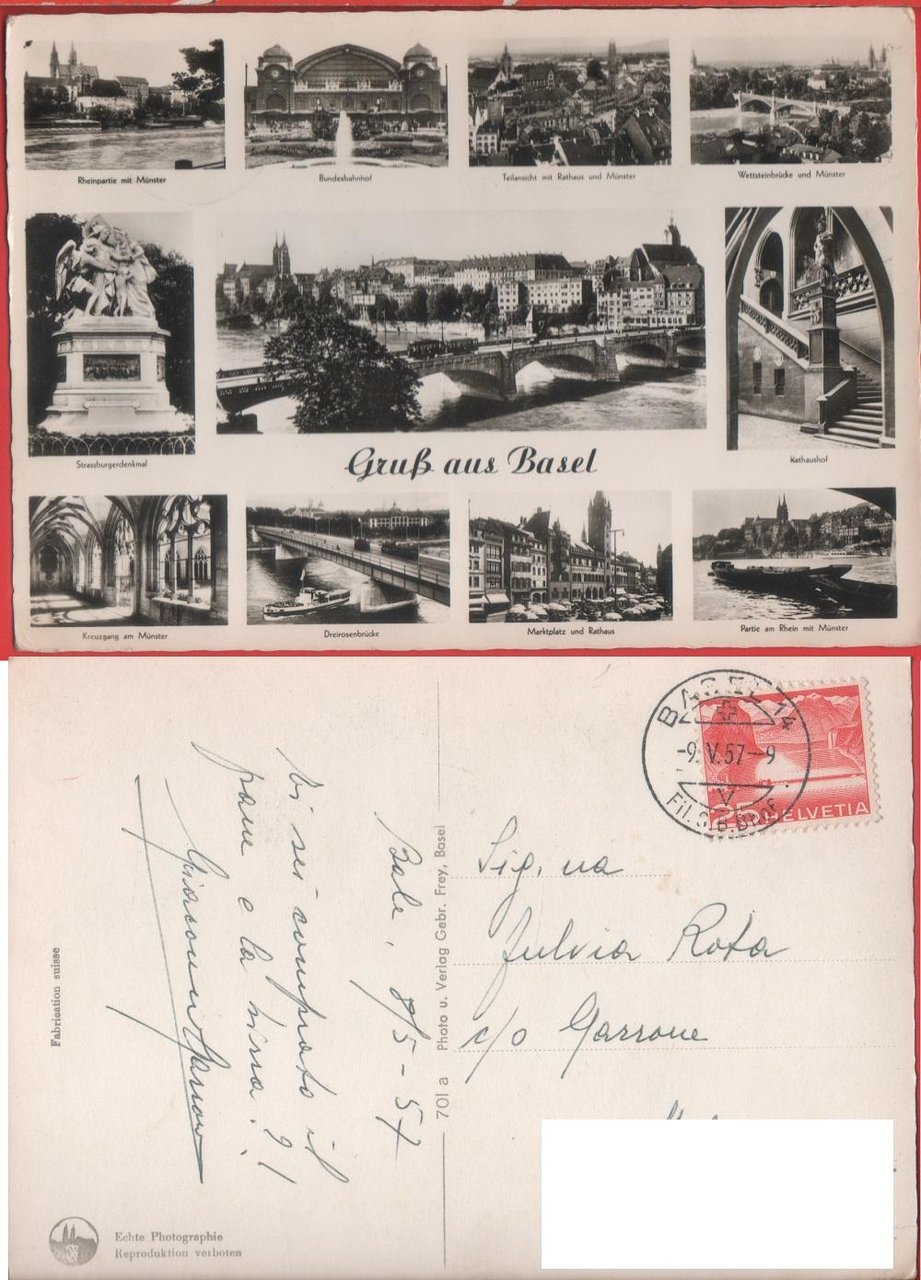 Rheinpartie mit Münster
Bundesbahnhof
Teilansicht mit Rathaus und Münster
Wettsteinbrücke und Münster
Strassburgerdenkmal
Gruß aus Basel
Rathaushof
Kreuzgang am Münster
Dreirosenbrücke
Marktplatz und Rathaus
Partie am Rhein mit Münster
BASEL 14
-9.V.57-9
V
25 HELVETIA
Sig.na
Fulvia Rota
c/o Garrone
Bale, 8/5-57
ti sei comprato il
pane e la
Photo u. Verlag Gebr. Frey, Basel
701 a
Fabrisation suisse
Echte Photographie
Reproduktion verboten